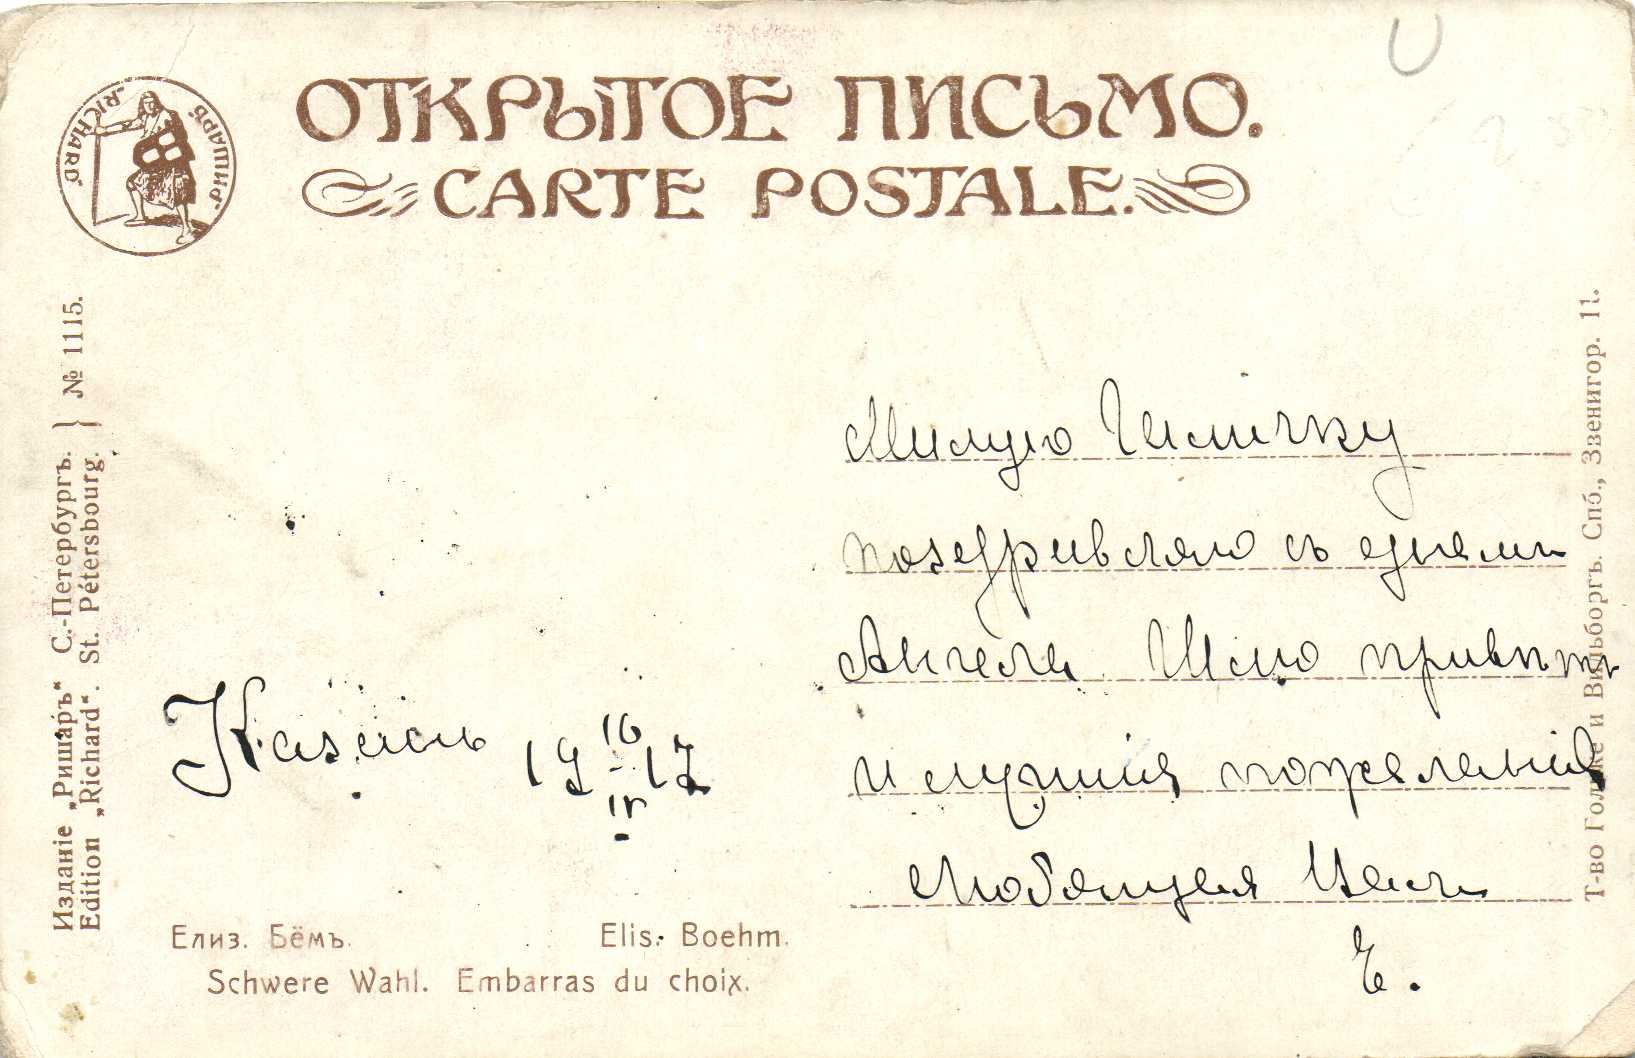 ОТКРЫТОЕ ПИСЬМО.
CARTE POSTALE.
„RICHARD“ „РИШАРЪ“
Изданіе „Ришаръ“ С.-Петербургъ.
Edition „Richard“. St. Pétersbourg.
№ 1115.
Милую
поздравляю съ днемъ
Ангела Шлю привѣтъ
и лучшія пожеланія
Любящая
Е.
Казань 19 16/IV 17
Елиз. Бёмъ. Elis. Boehm.
Schwere Wahl. Embarras du choix.
Т-во Голике и Вильборгъ. Спб., Звенигор. 11.